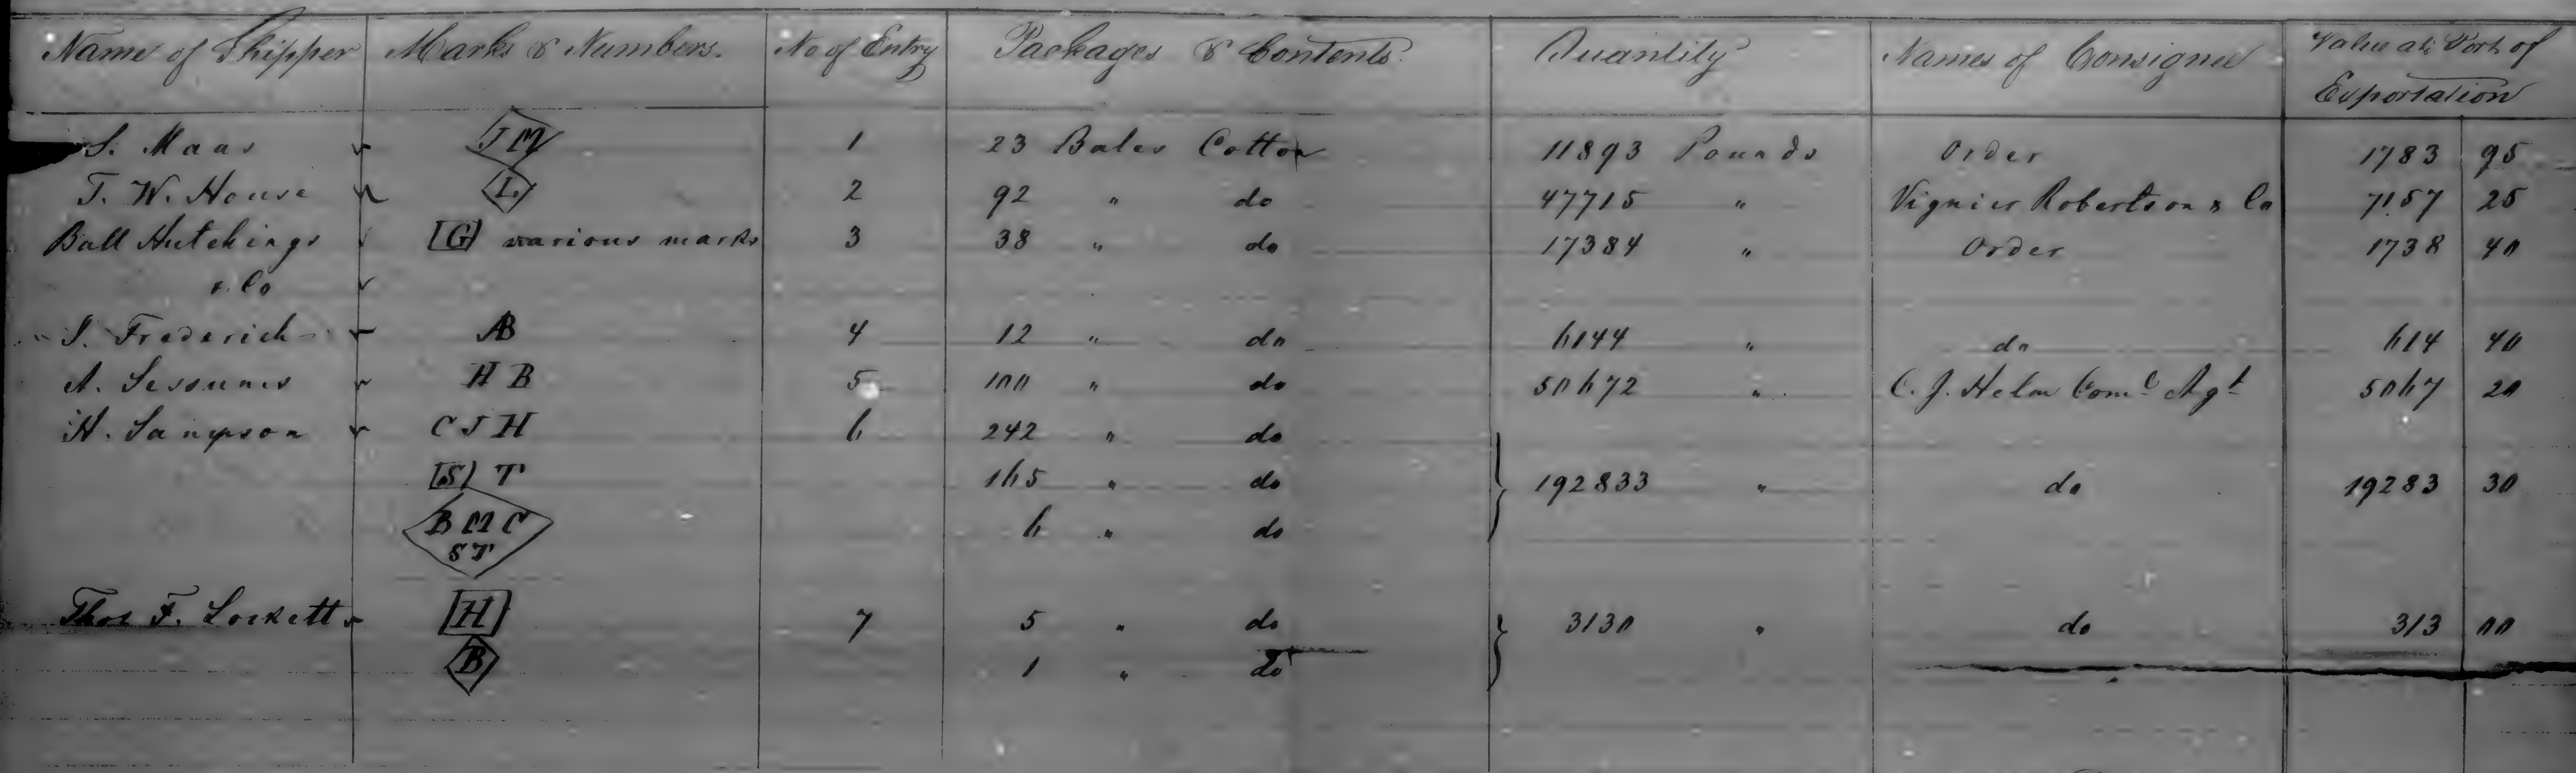 Name of Shipper Marks & Numbers. No of Entry Packages & Contents. Quantity Names of Consignee Value at Port of Exportation
S. Maas J M 1 23 Bales Cotton 11893 Pounds Order 1783 95
T. W. House L 2 92 " do 47715 " Vignier Robertson & Co 7157 25
Ball Hutchings G various marks 3 38 " do 17384 " Order 1738 40
& Co
J. Frederich AB 4 12 " do 6144 " do 614 40
A. Sessums H B 5 100 " do 50672 " C. J. Helm Comc Agt 5067 20
H. Sampson C J H 6 242 " do
S T 165 " do 192833 " do 19283 30
B M C 6 " do
S T
Thos F. Lockett H 7 5 " do 3130 " do 313 00
B 1 " do